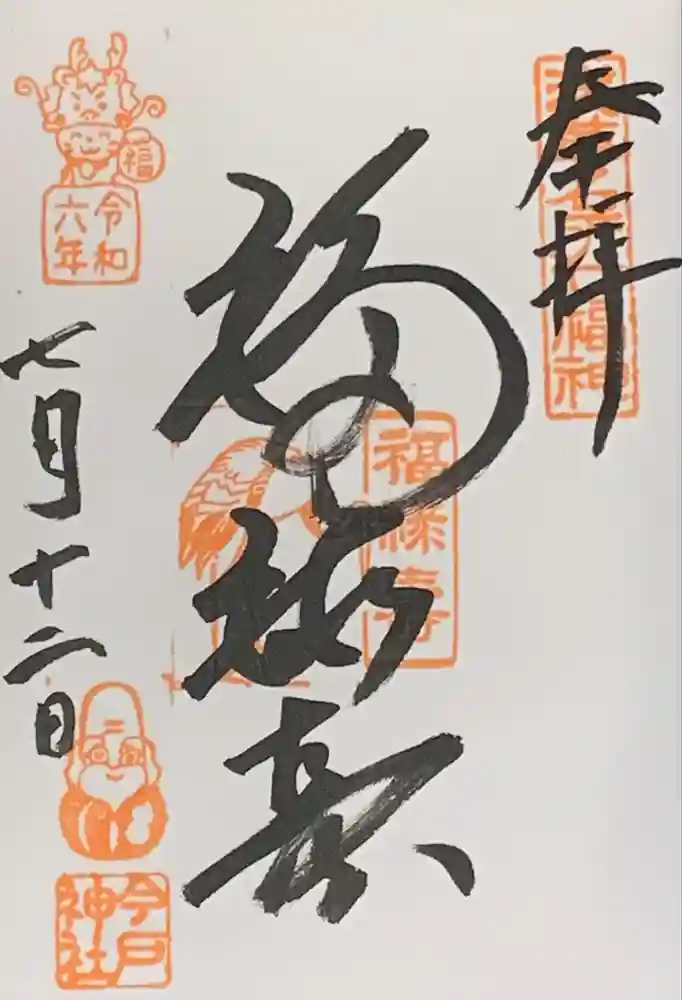 奉拝
浅草名所七福神
福禄寿
福禄寿
福
令和
六年
七月十二日
今戸
神社